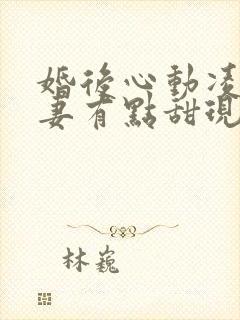 婚後心動凌
妻有點甜現
林巍